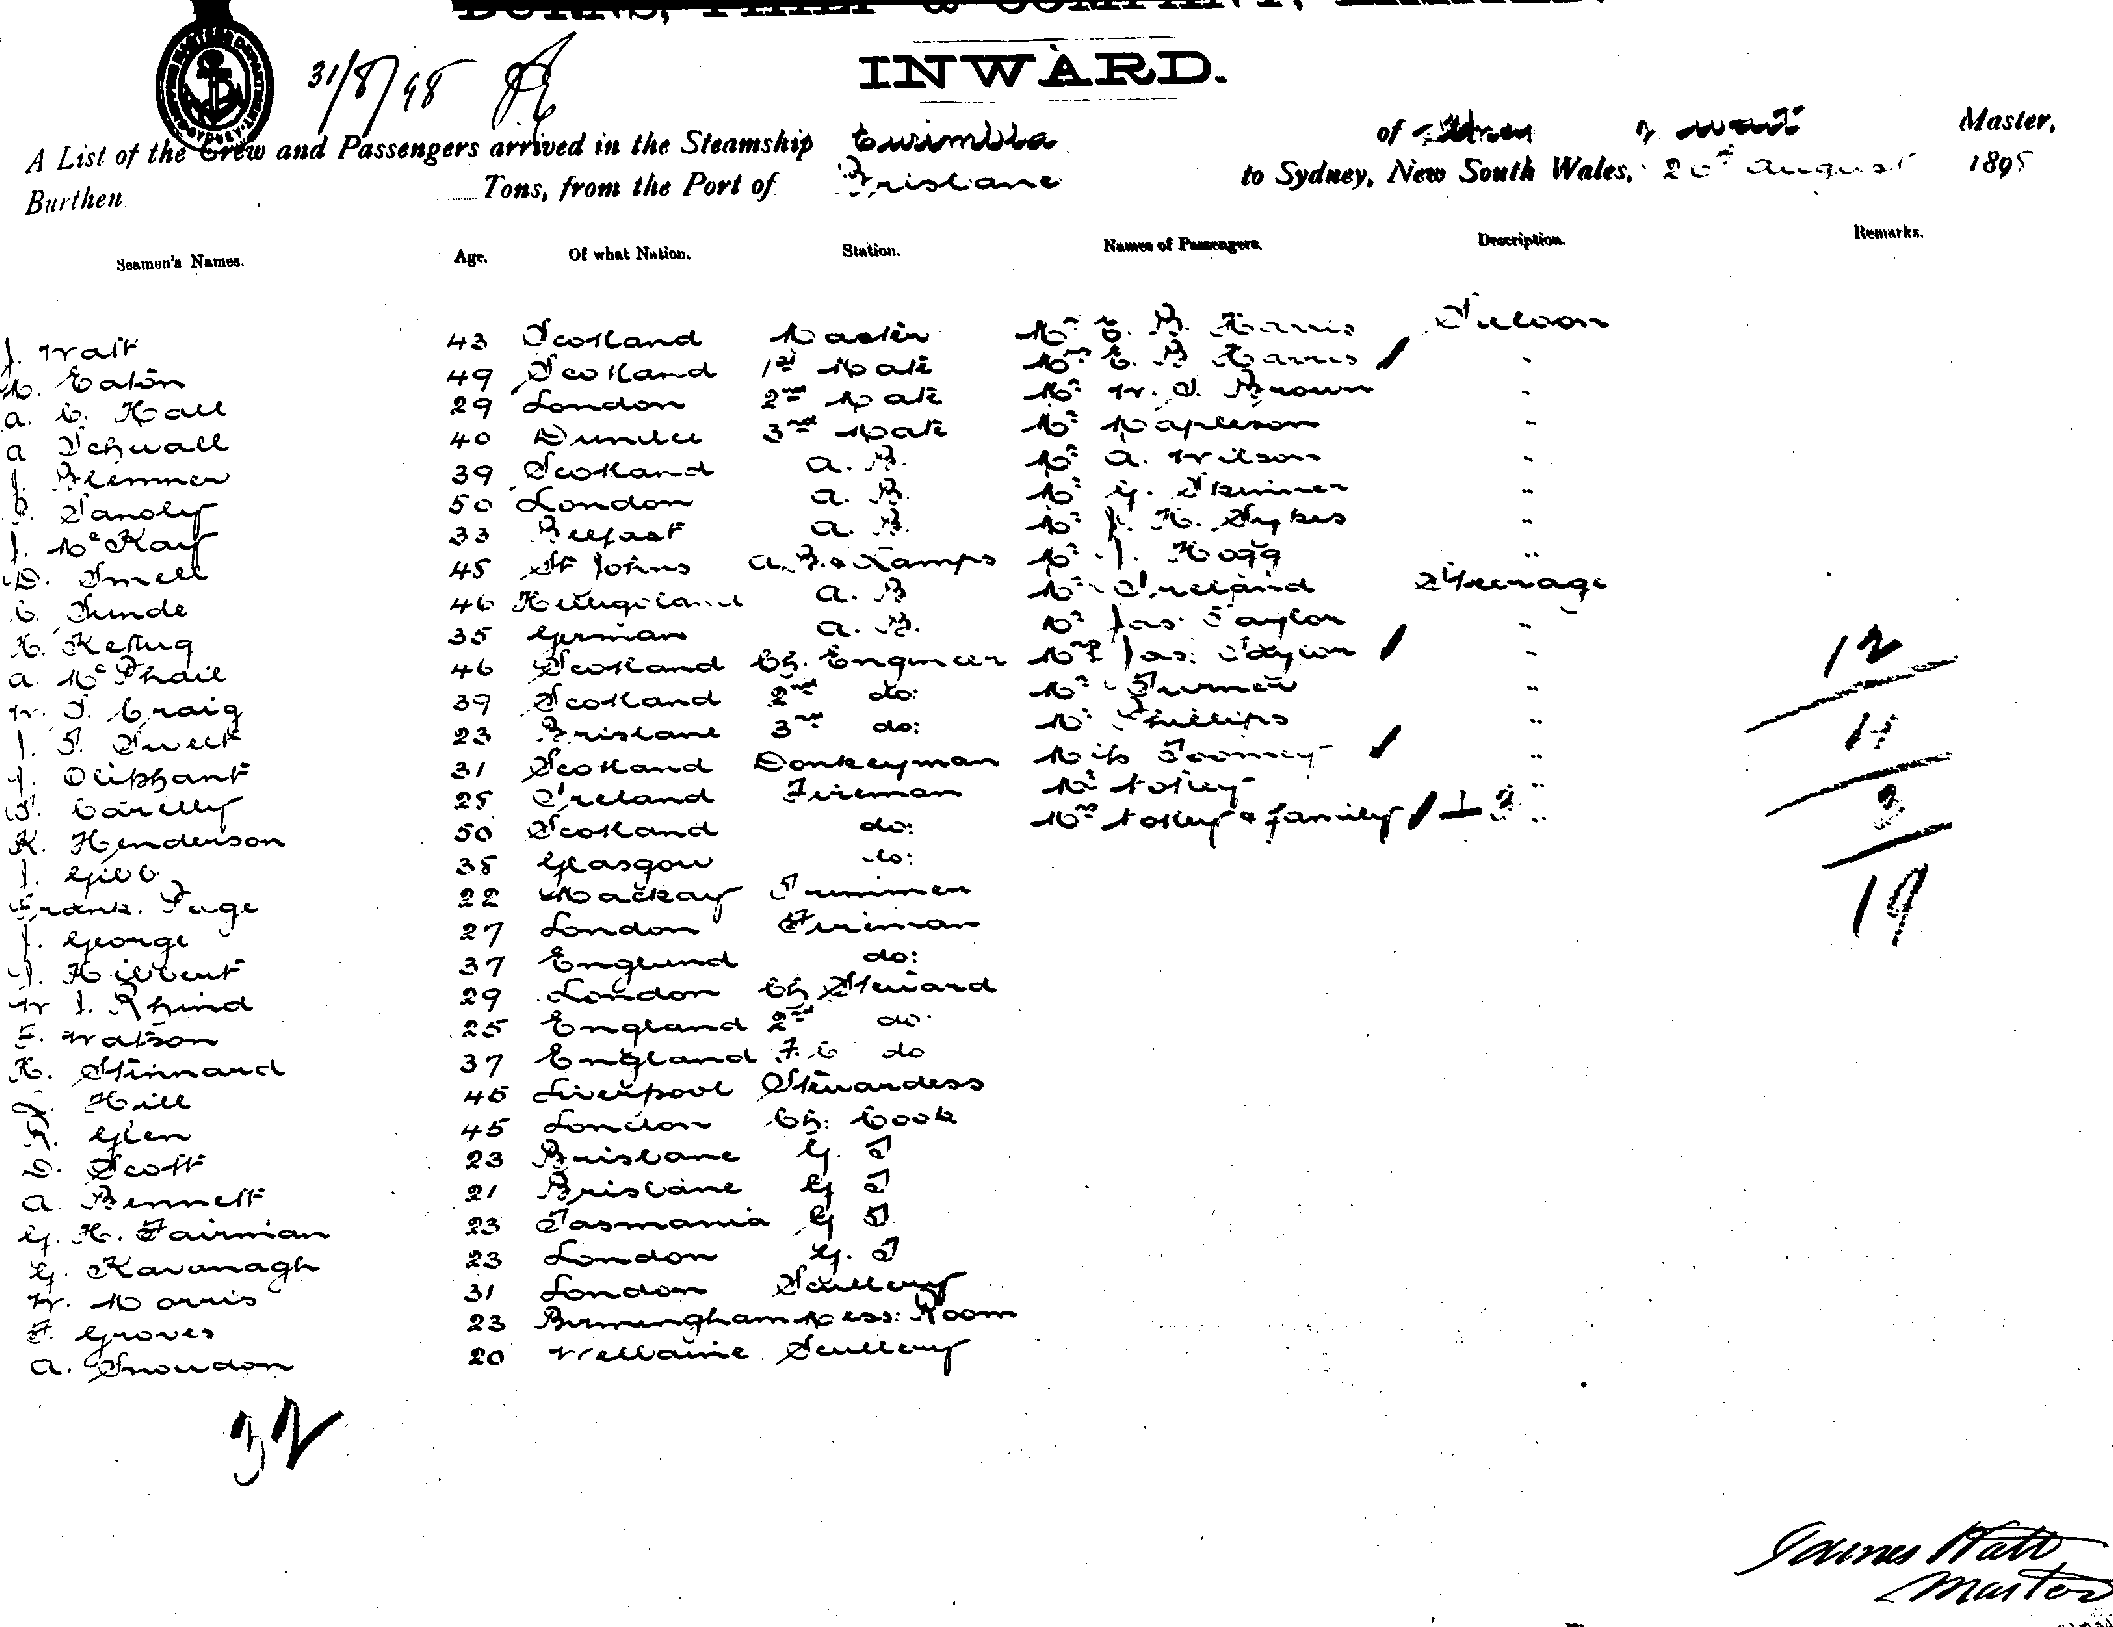 BURNS, PHILP & COMPANY, LIMITED.
INWARD.
31/8/98
A List of the Crew and Passengers arrived in the Steamship of Master,
Burthen Tons, from the Port of Brisbane to Sydney, New South Wales, August 1895
Seamen's Names. Age. Of what Nation. Station. Names of Passengers. Description. Remarks.
J. Watt 43 Scotland Master Mr E. B. Harris Saloon
M. Eaton 49 Scotland 1st Mate Mrs E. B Harris "
A. C. Hall 29 London 2nd Mate Mr W. J. Brown "
A Schwall 40 Dundee 3rd Mate Mr Mapleson "
J. Bremner 39 Scotland A. B. Mr A. Wilson "
Sandy 50 London A. B. Mr G. Skinner "
J. McKay 33 Belfast A. B. Mr H. Sykes "
D. Smell 45 St Johns A.B. & Lamps Mr J. Hogg "
C. Sunde 46 Heligoland A. B Mr Ireland Steerage
H. Kettug 35 German A. B. Mr Jas. Taylor "
A. McPhail 46 Scotland Ch. Engineer Mrs Jas. Taylor "
W. J. Craig 39 Scotland 2nd do: Mr Turner "
J. T. Swett 23 Brisbane 3rd do: Mr Phillips "
J. Oliphant 31 Scotland Donkeyman Miss Toomey "
Carelly 25 Ireland Fireman Mr
K. Henderson 50 Scotland do: Mrs & family 1 + 3 "
J. Gibb 35 Glasgow do:
Frank. Page 22 Mackay Trimmer
J. George 27 London Fireman
J. Hibbert 37 England do:
W J. Rhind 29 London Ch Steward
F. Watson 25 England 2nd do
H. Stinnard 37 England F. C do
Hill 45 Liverpool Stewardess
R. Glen 45 London Ch. Cook
D. Scott 23 Brisbane G. S
A. Bennett 21 Brisbane G S
G. H. Fairman 23 Tasmania G S
G. Kavanagh 23 London G. S
W. Morris 31 London Scullery
F. Groves 23 Birmingham Mess: Room
A. Snowdon 20 Scullery
12
4
3
19
32
James Watt
Master